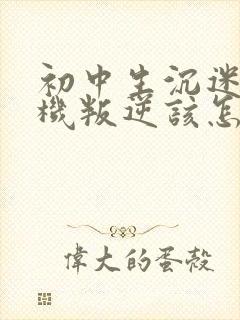 初中生沉迷
機叛逆該怎
偉大的蛋殼